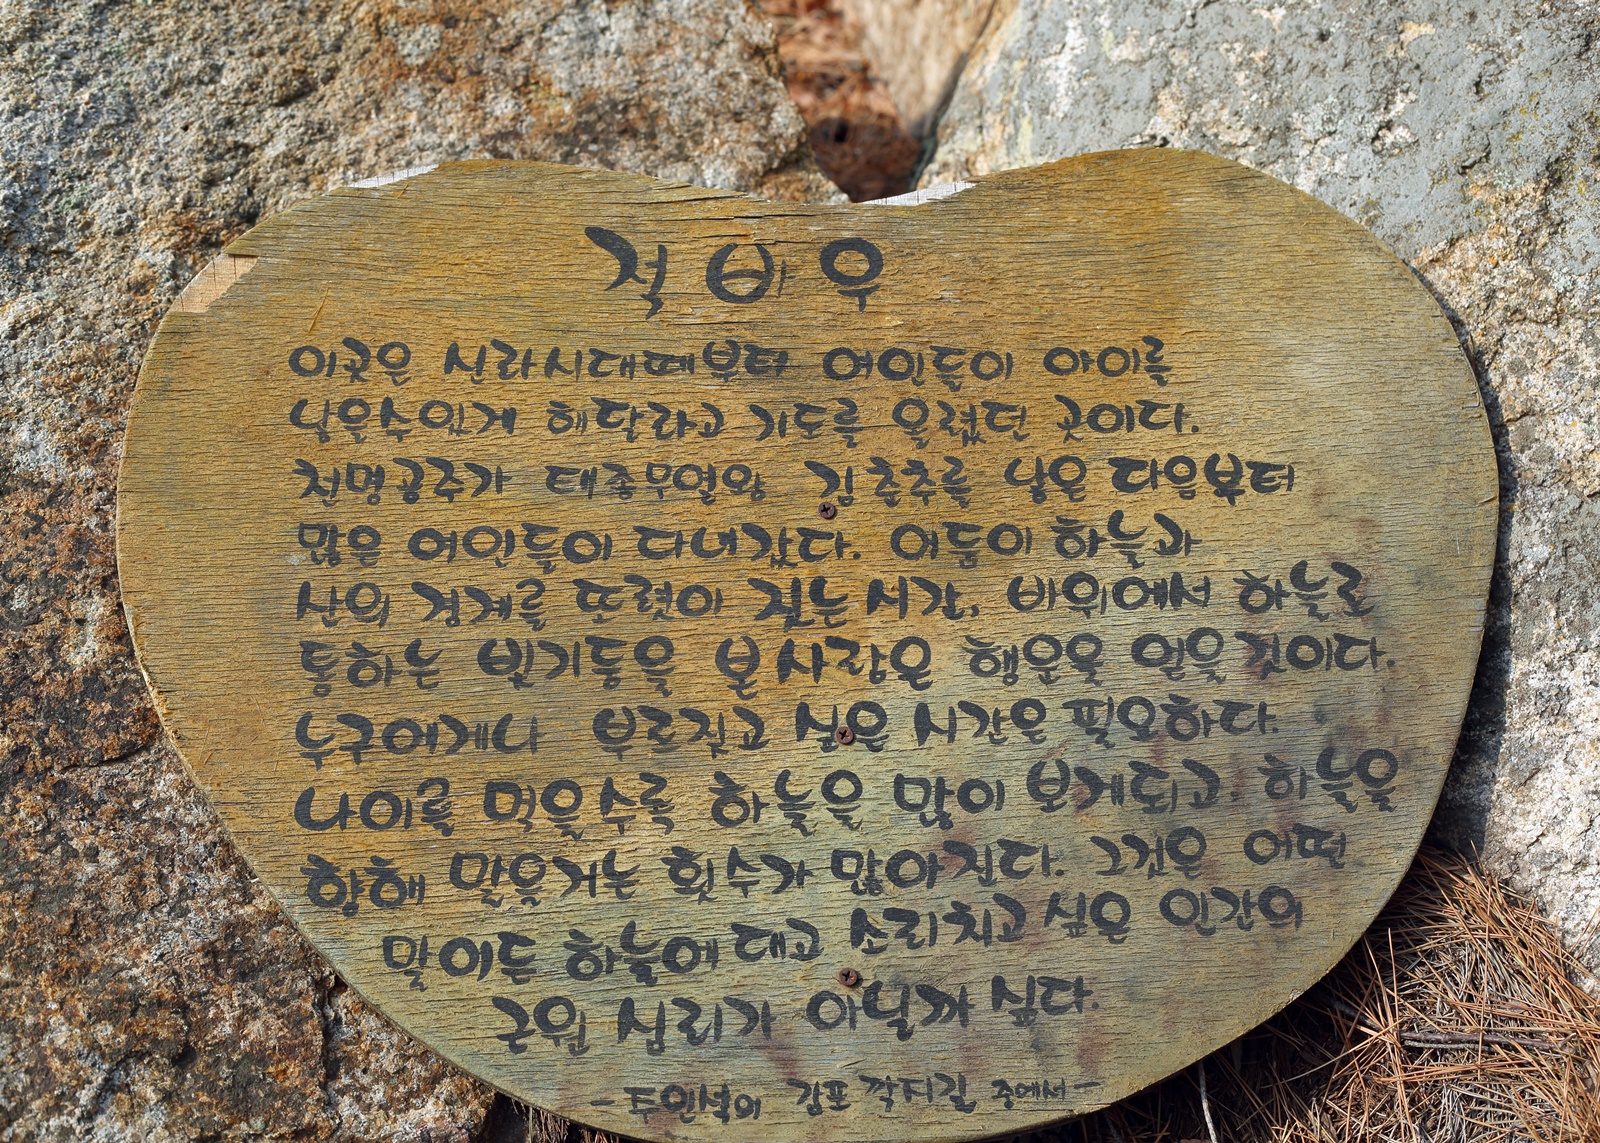 적바위
이곳은 신라시대때부터 여인들이 아이를
낳을수있게 해달라고 기도를 올렸던 곳이다.
천명공주가 태종무열왕 김춘추를 낳은 다음부터
많은 여인들이 다녀갔다. 어둠이 하늘과
산의 경계를 또렷이 짓는 시간, 바위에서 하늘로
통하는 빛기둥을 본 사람은 행운을 얻을 것이다.
누구에게나 부르짖고 싶은 시간은 필요하다.
나이를 먹을수록 하늘을 많이 보게되고, 하늘을
향해 말을거는 횟수가 많아진다. 그것은 어떤
말이든 하늘에 대고 소리치고 싶은 인간의
근원 심리가 아닐까 싶다.
-주인석의 감포 깍지길 중에서-